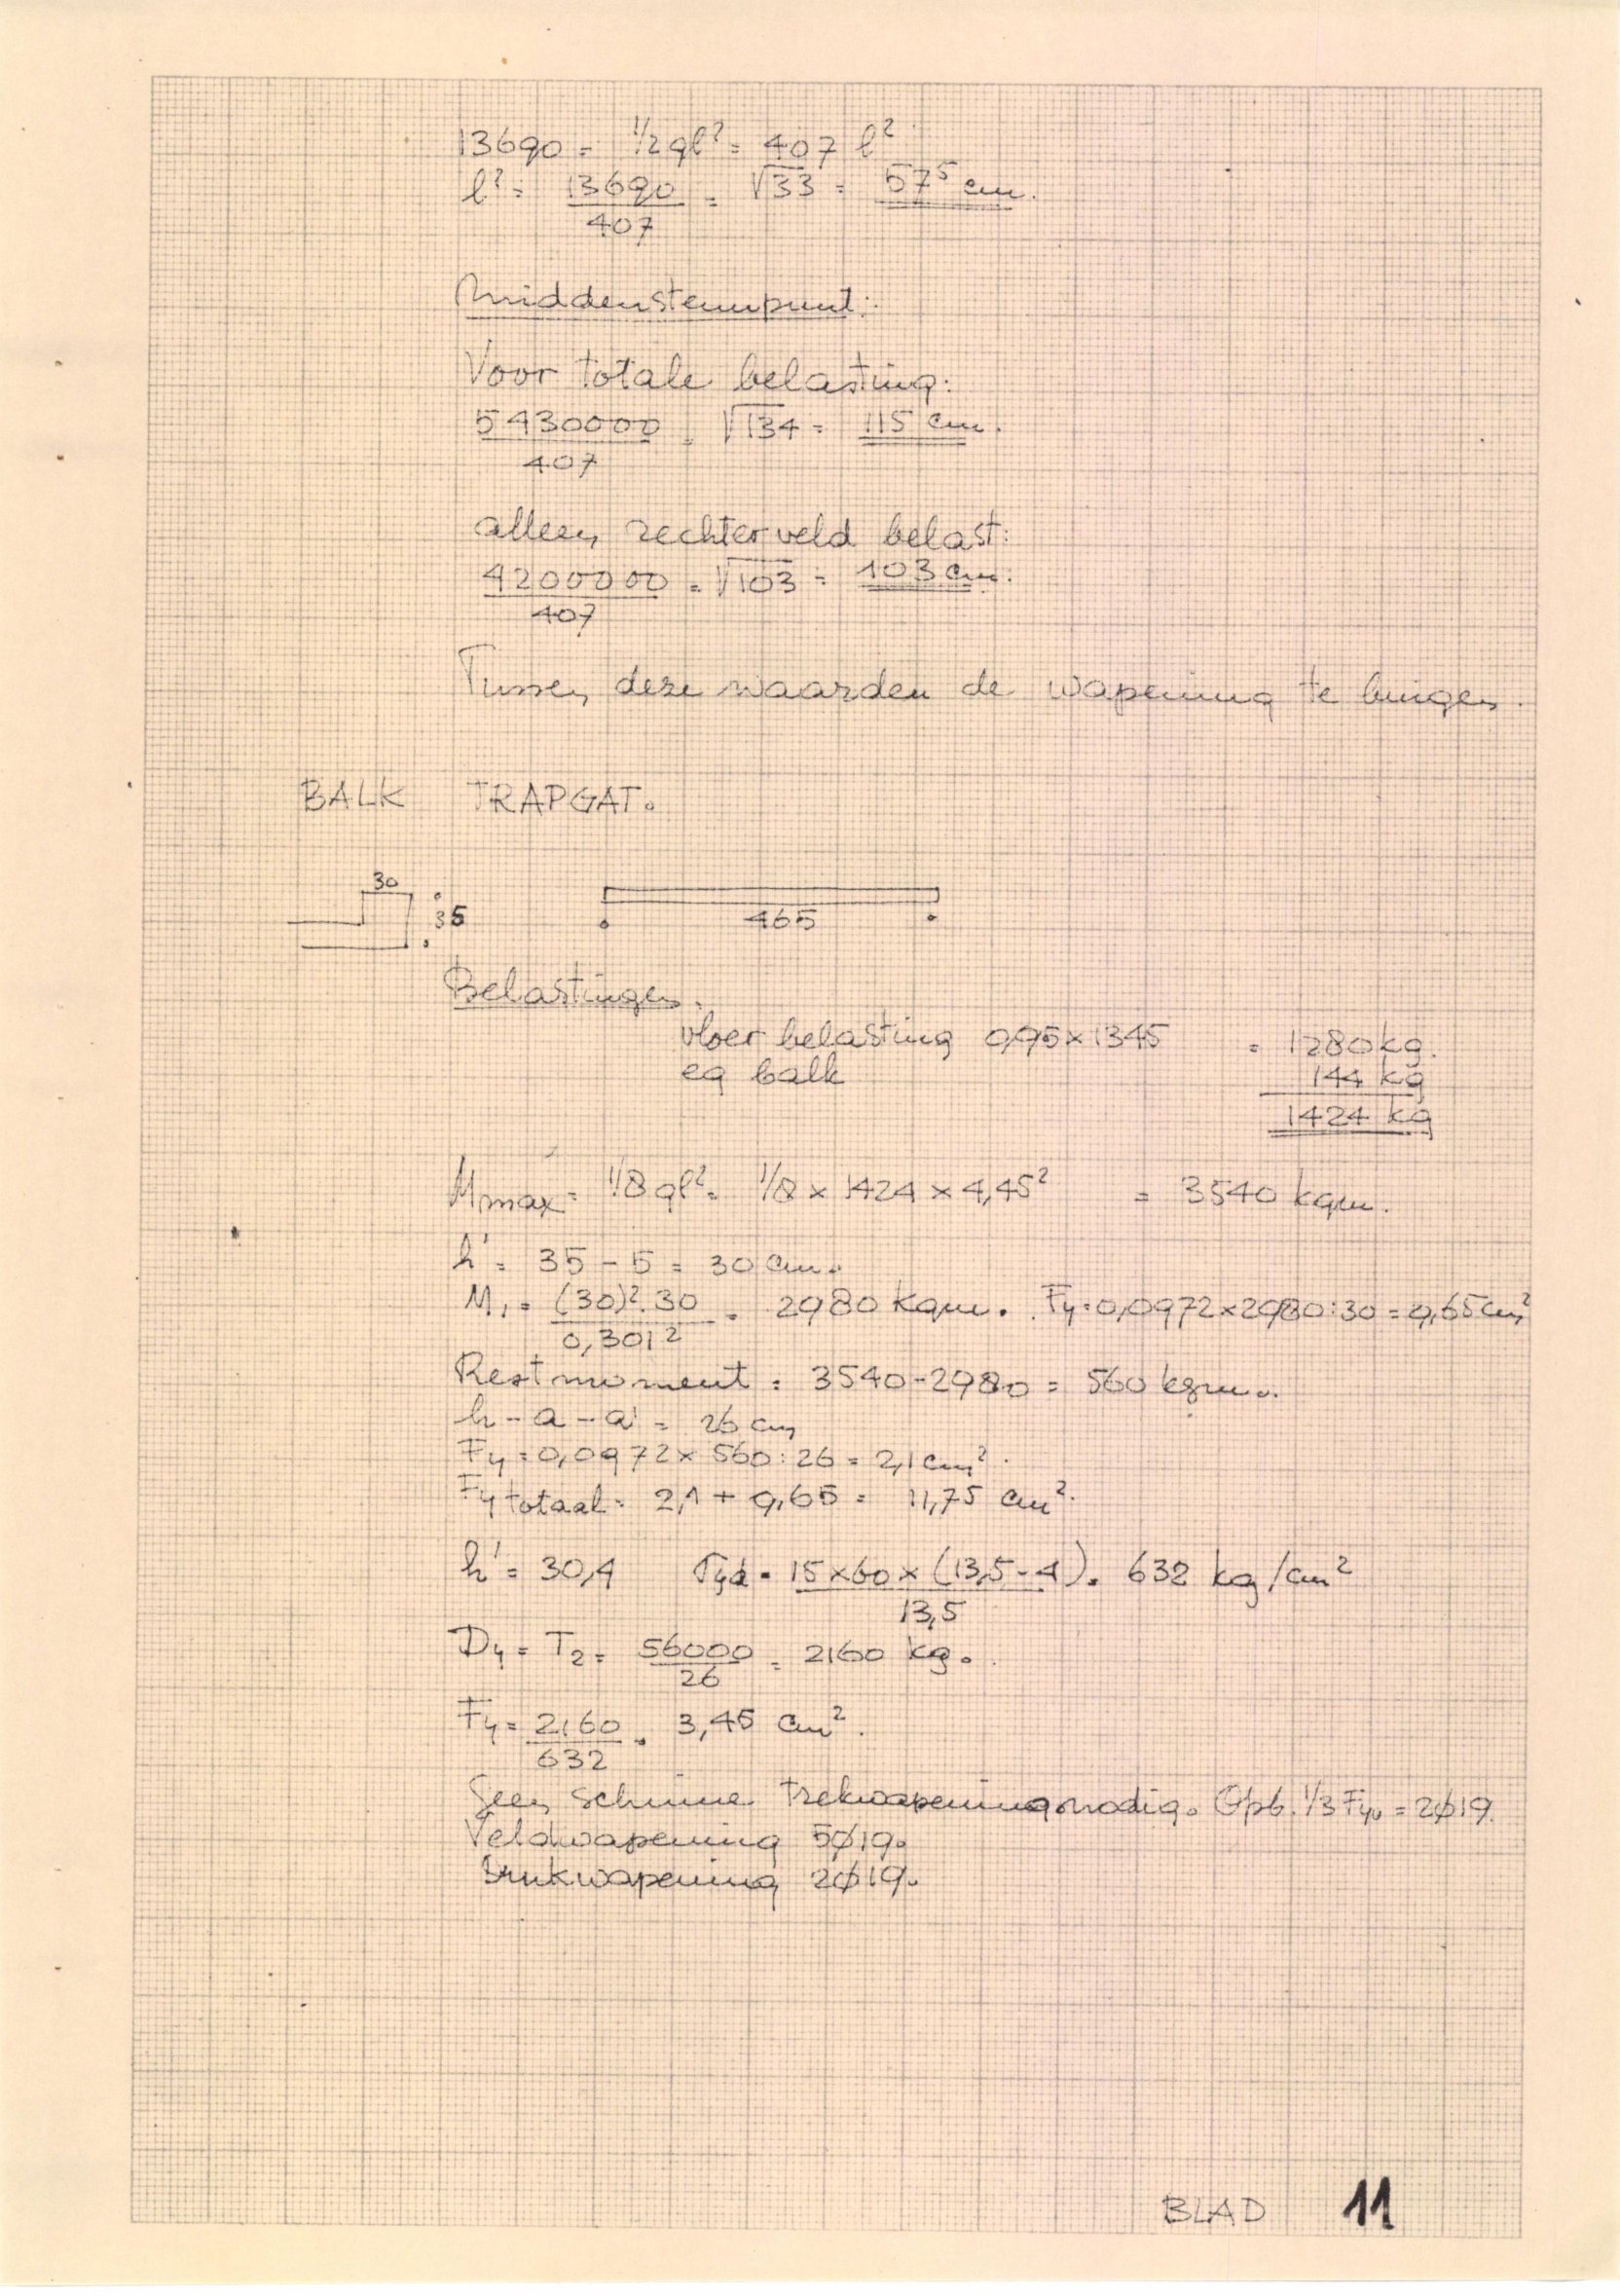 13690 = 1/2 ql² = 407 l²
l² = 13690/407 = √33 = 57⁵ cm.
Middensteunpunt:
Voor totale belasting:
5430000/407 = √134 = 115 cm.
alleen rechterveld belast:
4200000/407 = √103 = 103 cm.
Tussen deze waarden de wapening te buigen.
BALK TRAPGAT.
30
35
465
Belastingen.
vloer belasting 0,95 x 1345 = 1280 kg.
eg balk 144 kg
1424 kg
Mmax = 1/8 ql² = 1/8 x 1424 x 4,45² = 3540 kgm.
h' = 35 - 5 = 30 cm.
M₁ = (30)².30/0,301² = 2980 kgm. Fy = 0,0972 x 2980 : 30 = 9,65 cm²
Restmoment = 3540 - 2980 = 560 kgm.
h - a - a' = 26 cm
Fy = 0,0972 x 560 : 26 = 2,1 cm².
Fy totaal = 2,1 + 9,65 = 11,75 cm².
h' = 30,4 σyd = 15 x 60 x (13,5 - 4)/13,5 = 632 kg/cm²
Dy = T₂ = 56000/26 = 2160 kg.
Fy = 2160/632 = 3,45 cm².
Geen schuine trekwapening nodig. Opb. 1/3 Fyv = 2ø19.
Veldwapening 5ø19.
Drukwapening 2ø19.
BLAD 11